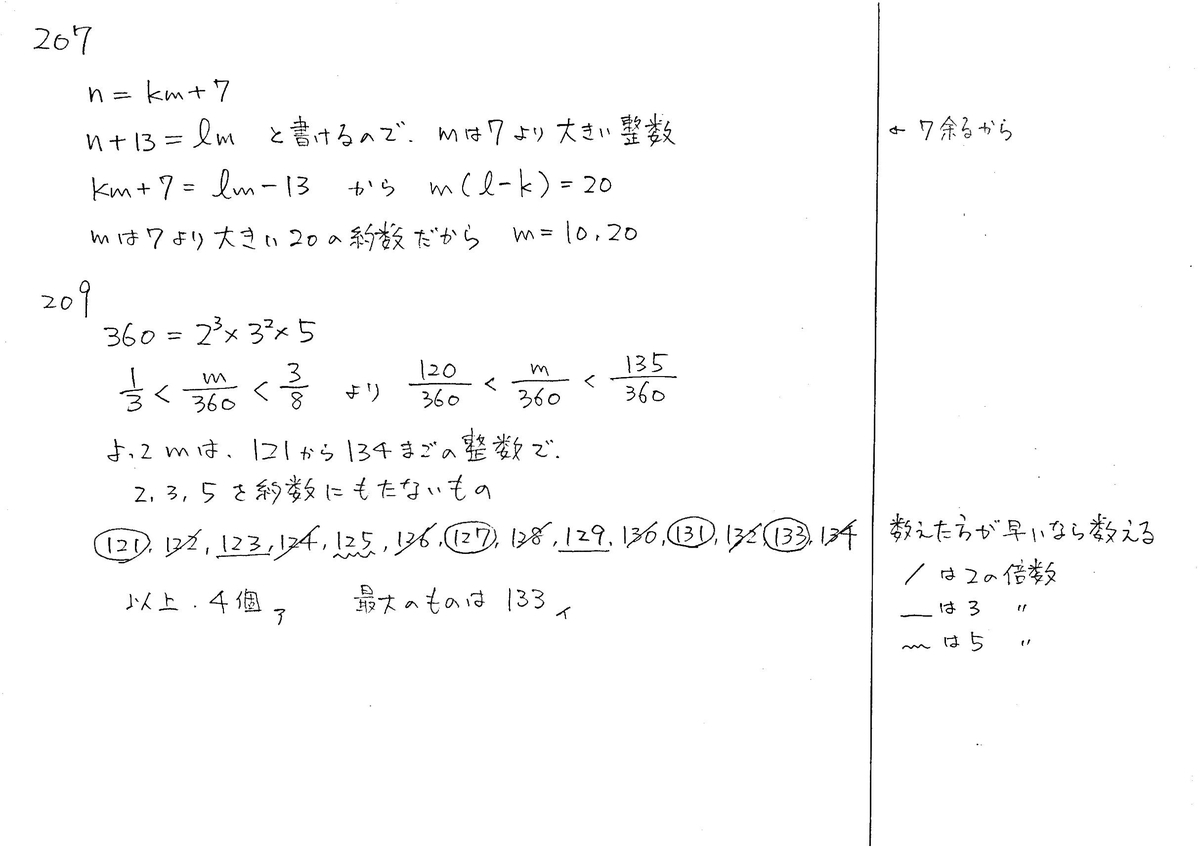 207
n = km+7
n+13 = lm と書けるので. mは7より大きい整数
← 7余るから
km+7 = lm-13 から m(l-k) = 20
mは7より大きい20の約数だから m = 10, 20
209
360 = 2³×3²×5
1/3 < m/360 < 3/8 より 120/360 < m/360 < 135/360
よって mは、121から134までの整数で.
2, 3, 5を約数にもたないもの
121, 122, 123, 124, 125, 126, 127, 128, 129, 130, 131, 132, 133, 134
数えた方が早いなら数える
/ は2の倍数
＿は3 〃
﹏は5 〃
以上. 4個ア 最大のものは 133イ